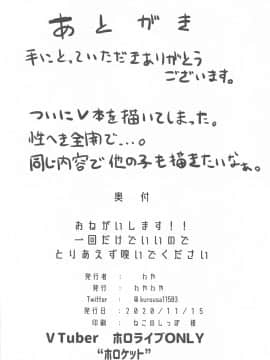 あとがき
手にとっていただきありがとう
ございます。
ついにV本を描いてしまった。
性へき全開で…。
同じ内容で他の子も描きたいなぁ。
奥 付
おねがいします！！
一回だけでいいので
とりあえず吸いでください
発行者 ：
発行 ：
Twitter ： @kurousa11583
発行日 ： 2020/11/15
印刷 ： ねこのしっぽ 様
VTuber ホロライブONLY
“ホロケット”